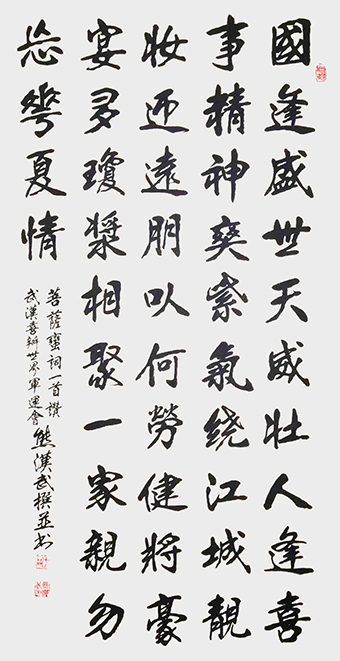 國逢盛世天威壯人逢喜
事精神奕紫氣绕江城靚
妝迎遠朋以何勞健將豪
宴多瓊漿相聚一家親勿
忘華夏情
菩薩蠻詞一首讚
武漢喜辦世界軍運會熊漢武撰並书